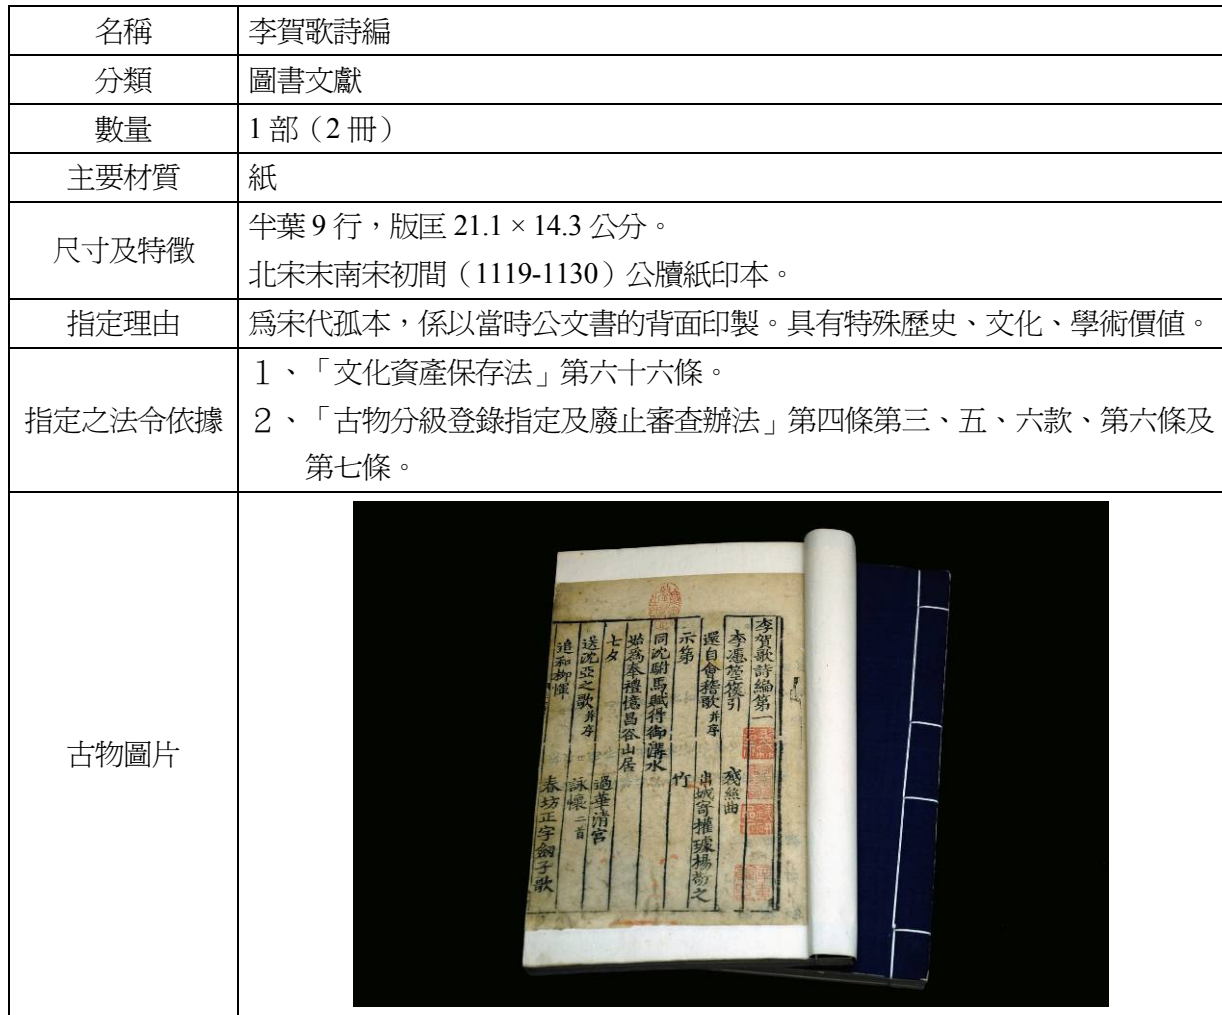 名稱 李賀歌詩編
分類 圖書文獻
數量 1 部（2 冊）
主要材質 紙
尺寸及特徵 半葉 9 行，版匡 21.1 × 14.3 公分。
北宋末南宋初間（1119-1130）公牘紙印本。
指定理由 為宋代孤本，係以當時公文書的背面印製。具有特殊歷史、文化、學術價值。
指定之法令依據 １、「文化資產保存法」第六十六條。
２、「古物分級登錄指定及廢止審查辦法」第四條第三、五、六款、第六條及
第七條。
古物圖片
李賀歌詩編第一
李憑箜篌引 殘絲曲
還自會稽歌并序 出城寄權璩楊敬之
示弟 竹
同沈駙馬賦得御溝水
始為奉禮憶昌谷山居
七夕 過華清宮
送沈亞之歌并序 詠懷二首
追和柳惲 春坊正字劒子歌